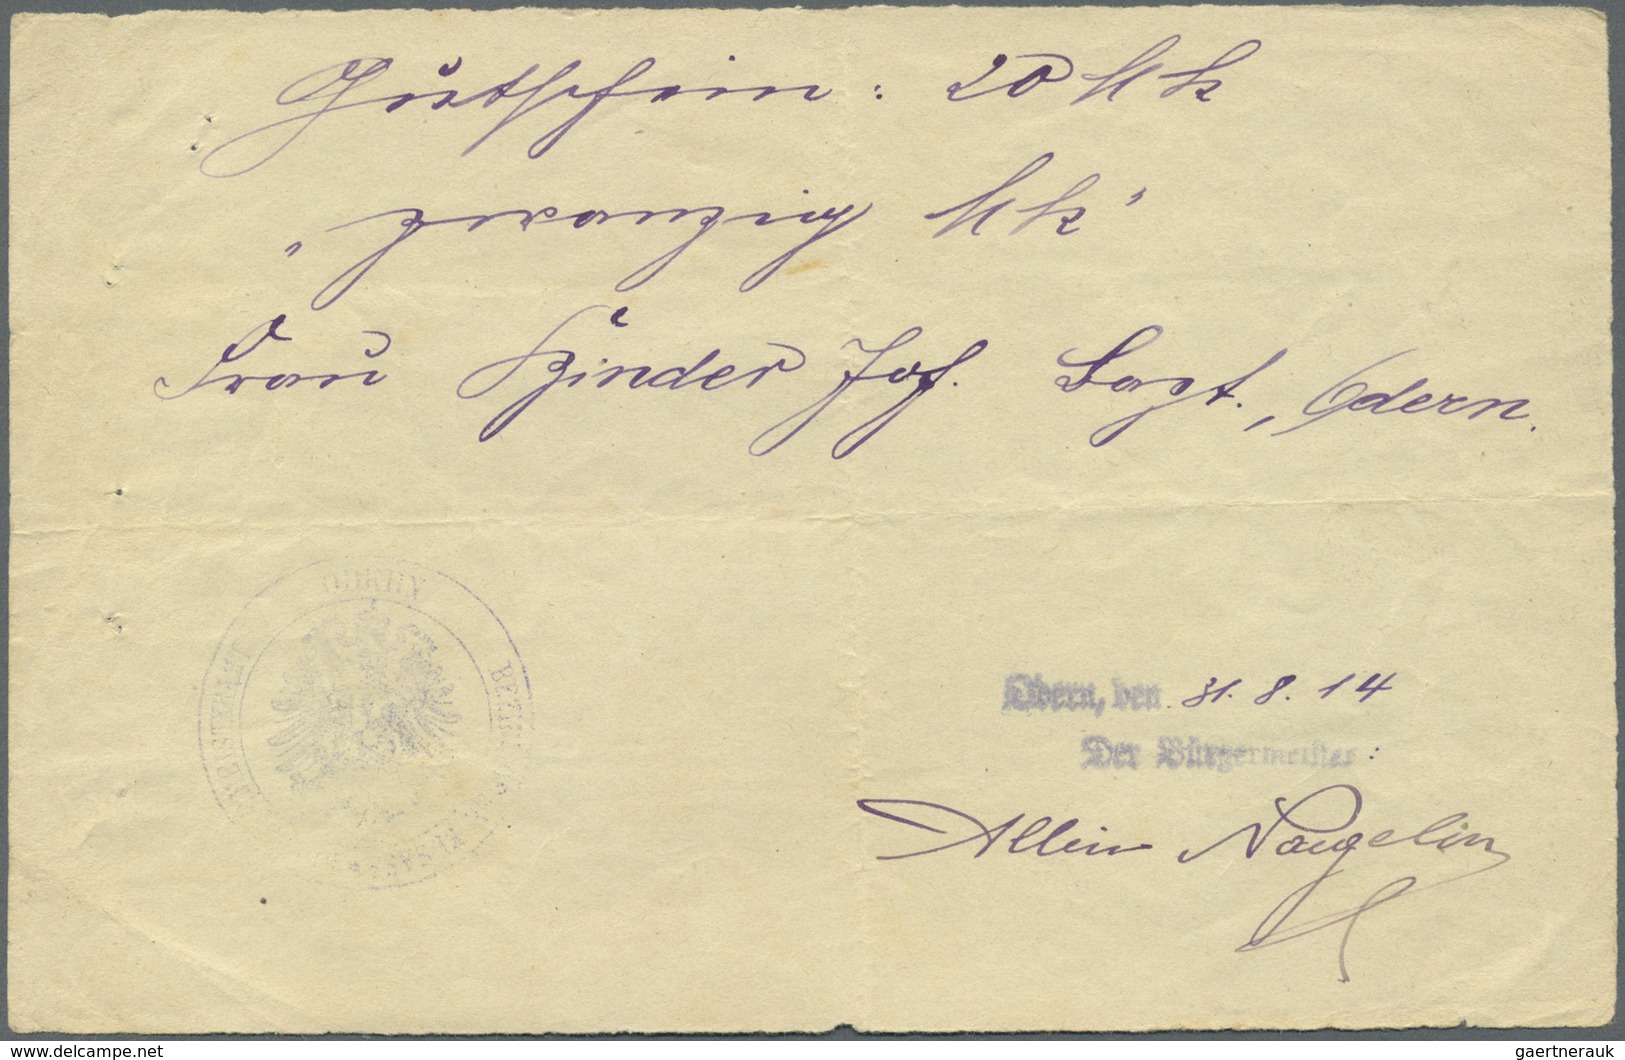 Gutschein: 20 Mk
"zwanzig Mk"
Frau Jos. , Odern.
ODERN
BEZIRK
ELSASS
Odern, den 31.8.14
Der Bürgermeister:
Naegelin
www.delcampe.net
gaertnerauk